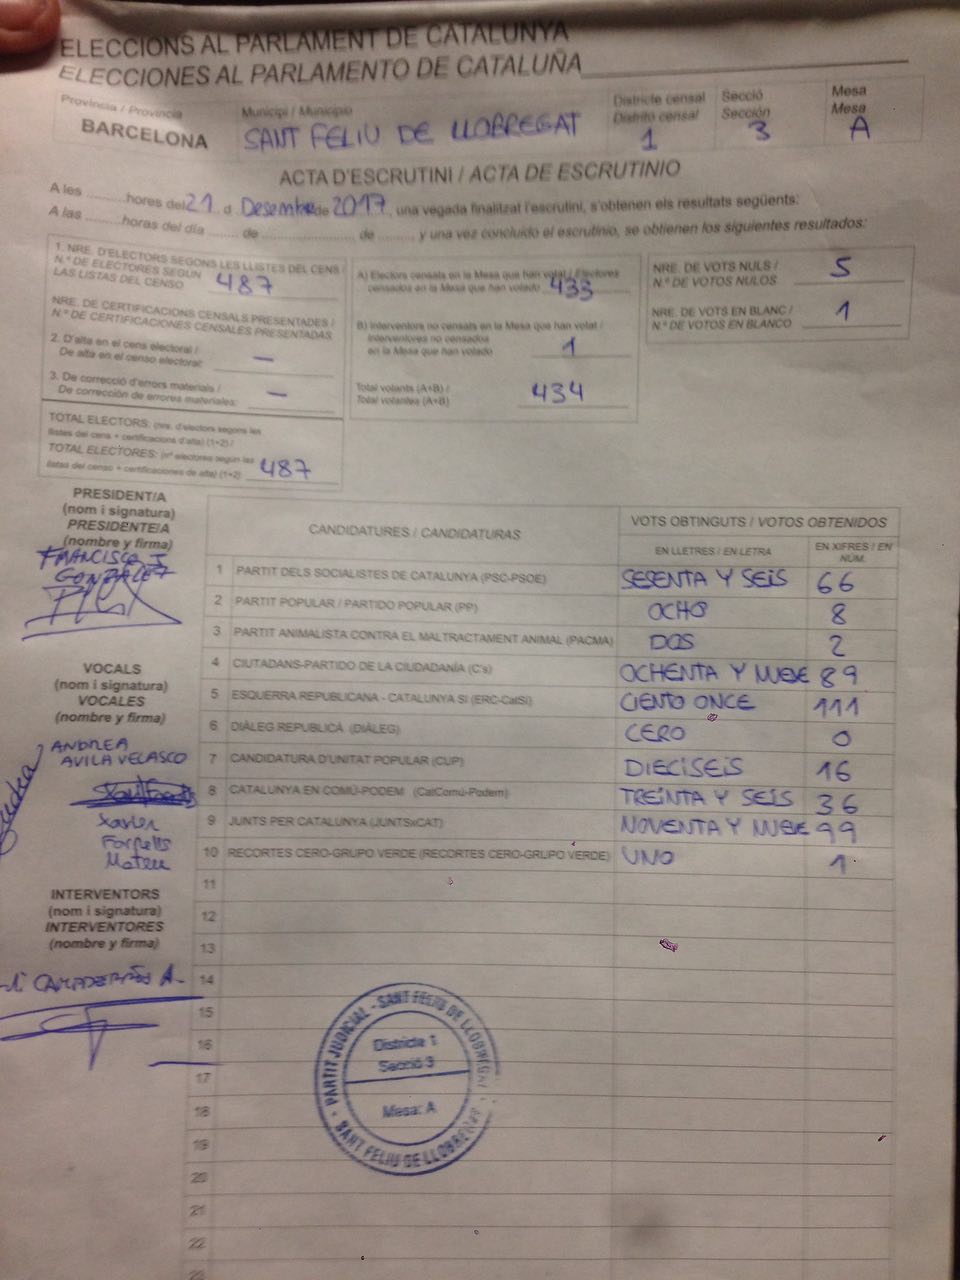 ELECCIONS AL PARLAMENT DE CATALUNYA
ELECCIONES AL PARLAMENTO DE CATALUÑA
Provincia / Provincia
BARCELONA
Municipi / Municipio
SANT FELIU DE LLOBREGAT
Districte censal
Distrito censal
1
Secció
Sección
3
Mesa
Mesa
A
ACTA D'ESCRUTINI / ACTA DE ESCRUTINIO
A les .........hores del 21 d Desembre de 2017, una vegada finalitzat l'escrutini, s'obtenen els resultats següents:
A las .........horas del día ....... de ........................ de ......... y una vez concluido el escrutinio, se obtienen los siguientes resultados:
1. NRE. D'ELECTORS SEGONS LES LLISTES DEL CENS
N.º DE ELECTORES SEGÚN
LAS LISTAS DEL CENSO 487
NRE. DE CERTIFICACIONS CENSALS PRESENTADES /
N.º DE CERTIFICACIONES CENSALES PRESENTADAS
2. D'alta en el cens electoral /
De alta en el censo electoral: —
3. De correcció d'errors materials /
De corrección de errores materiales: —
TOTAL ELECTORS: (nre. d'electors segons les
llistes del cens + certificacions d'alta) (1+2) /
TOTAL ELECTORES: (nº electores según las
listas del censo + certificaciones de alta) (1+2) 487
A) Electors censats en la Mesa que han votat / Electores
censados en la Mesa que han votado 433
B) Interventors no censats en la Mesa que han votat /
Interventores no censados
en la Mesa que han votado 1
Total votants (A+B) /
Total votantes (A+B) 434
NRE. DE VOTS NULS /
N.º DE VOTOS NULOS 5
NRE. DE VOTS EN BLANC /
N.º DE VOTOS EN BLANCO 1
PRESIDENT/A
(nom i signatura)
PRESIDENTE/A
(nombre y firma)
FRANCISCO J.
GONZALEZ
VOCALS
(nom i signatura)
VOCALES
(nombre y firma)
ANDREA
AVILA VELASCO
Andrea
Xavier
Farrells
Mateu
INTERVENTORS
(nom i signatura)
INTERVENTORES
(nombre y firma)
CANDIDATURES / CANDIDATURAS
VOTS OBTINGUTS / VOTOS OBTENIDOS
EN LLETRES / EN LETRA
EN XIFRES / EN NÚM.
1 PARTIT DELS SOCIALISTES DE CATALUNYA (PSC-PSOE) SESENTA Y SEIS 66
2 PARTIT POPULAR / PARTIDO POPULAR (PP) OCHO 8
3 PARTIT ANIMALISTA CONTRA EL MALTRACTAMENT ANIMAL (PACMA) DOS 2
4 CIUTADANS-PARTIDO DE LA CIUDADANÍA (C's) OCHENTA Y NUEVE 89
5 ESQUERRA REPUBLICANA - CATALUNYA SI (ERC-CatSí) CIENTO ONCE 111
6 DIÀLEG REPUBLICÀ (DIÀLEG) CERO 0
7 CANDIDATURA D'UNITAT POPULAR (CUP) DIECISEIS 16
8 CATALUNYA EN COMÚ-PODEM (CatComú-Podem) TREINTA Y SEIS 36
9 JUNTS PER CATALUNYA (JUNTSxCAT) NOVENTA Y NUEVE 99
10 RECORTES CERO-GRUPO VERDE (RECORTES CERO-GRUPO VERDE) UNO 1
11
12
13
14
15
16
17
18
19
20
21
22
23
PARTIT JUDICIAL - SANT FELIU DE LLOBREGAT -
SANT FELIU DE LLOBREGAT
Districte 1
Secció 3
Mesa: A